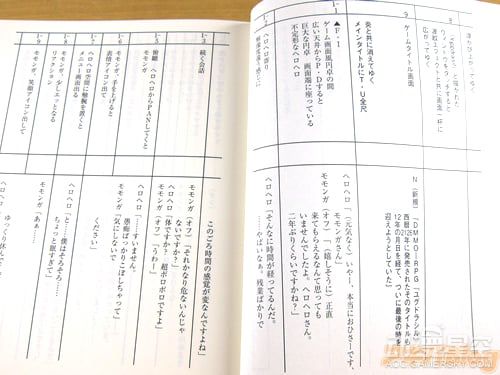 と描かれた
ウィンドウをタッチすると
広がってゆく
9
ゲームタイトル画面
炎と共に消えてゆく
メインタイトルにT・U全尺
▲F・I
1-1
ゲーム画面風円卓の間
広い天井からP・Dすると
巨大な円卓 画面端に座っている
不定形なヘロヘロ
1-2
ヘロヘロ寄り
N（新規）「DMMO-RPG『ユグドラシル』
西暦2126年に発売されたそのタイトルも
12年の月日を経て、ついに最後の時を
迎えようとしていた」
ヘロヘロ「（元気なく）いやー、本当におひさーです、
モモンガさん」
モモンガ（オフ）「（嬉しそうに）正直
来てもらえるなんて思っても
いませんでしたよ。ヘロヘロさん。
二年ぶりくらいですかね？」
ヘロヘロ「そんなに時間が経ってるんだ。
……やばいなぁ。残業ばかりで
1-3
続く会話
1-5
俯瞰 ヘロヘロからPANしてくと
モモンガ
1-6
モモンガ、手を上げると
表情アイコン出す
1-8
ヘロヘロ空間に触腕を置くと
メニュー画面出る
モモンガ、少しえっとなる
リアクション
1-9
モモンガ、笑顔アイコン出して
このごろ時間の感覚が変なんですよね」
モモンガ（オフ）「それかなり危ないんじゃ
ないですか？」
ヘロヘロ「体ですか？ 超ボロボロですよ」
モモンガ（オフ）「うわー」
ヘロヘロ「……すいません。
愚痴ばっかりこぼしちゃって」
モモンガ「気にしないで
ください」
ヘロヘロ「と、僕はそろそろ……
ちょっと眠すぎて」
モモンガ「あぁ……
ヘロヘロ「
ゆっくり休んで
ACG.GAMERSKY.COM